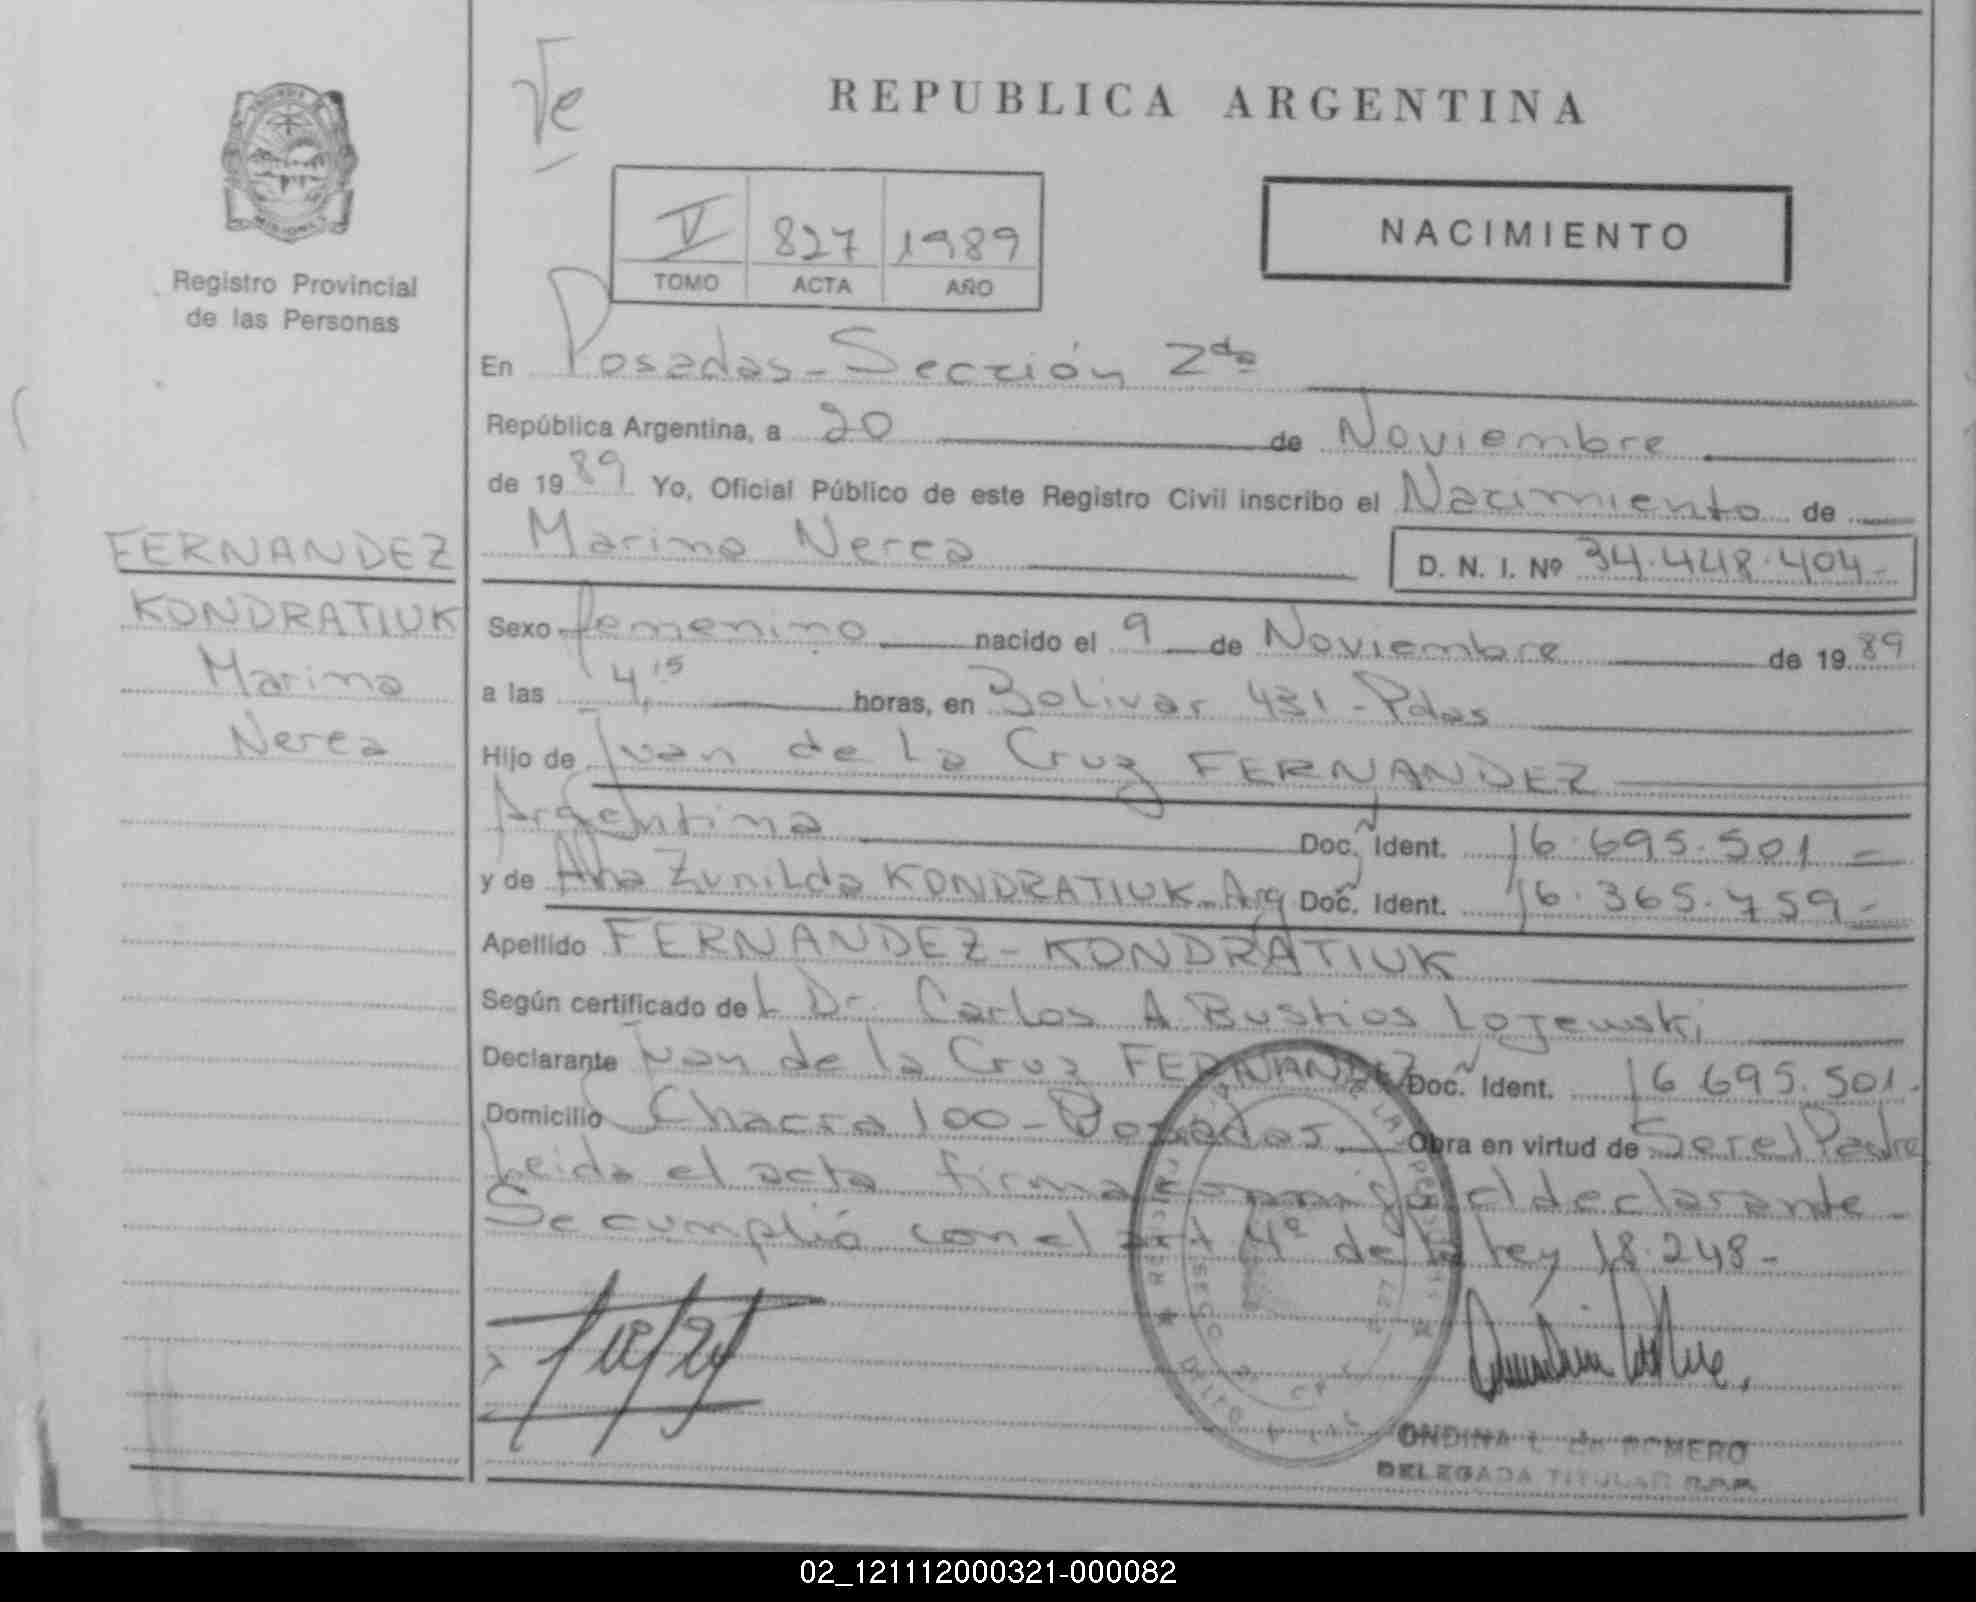 Te
REPUBLICA ARGENTINA
V 827 1989
TOMO ACTA AÑO
NACIMIENTO
Registro Provincial
de las Personas
FERNANDEZ
KONDRATIUK
Marina
Nerea
En Posadas - Sección 2da
República Argentina, a 20 de Noviembre
de 1989 Yo, Oficial Público de este Registro Civil inscribo el Nacimiento de
Marina Nerea D. N. I. Nº 34.448.404-
Sexo femenino nacido el 9 de Noviembre de 1989
a las 4,15 horas, en Bolivar 431 - Pdas
Hijo de Juan de La Cruz FERNANDEZ
Argentina Doc. Ident. 16.695.501 -
y de Ana Zunilda KONDRATIUK - Arg Doc. Ident. 16.365.759 -
Apellido FERNANDEZ - KONDRATIUK
Según certificado del Dr. Carlos A Bustios Lojewski
Declarante Juan de la Cruz FERNANDEZ Doc. Ident. 16 695.501.
Domicilio Chacra 100 - Posadas Obra en virtud de Ser el Padre
Leida el acta firma conmigo el declarante -
Se cumplió con el art 4º de la ley 18.248 -
ONDINA L. de ROMERO
DELEGADA TITULAR R.P.P.
02_121112000321-000082